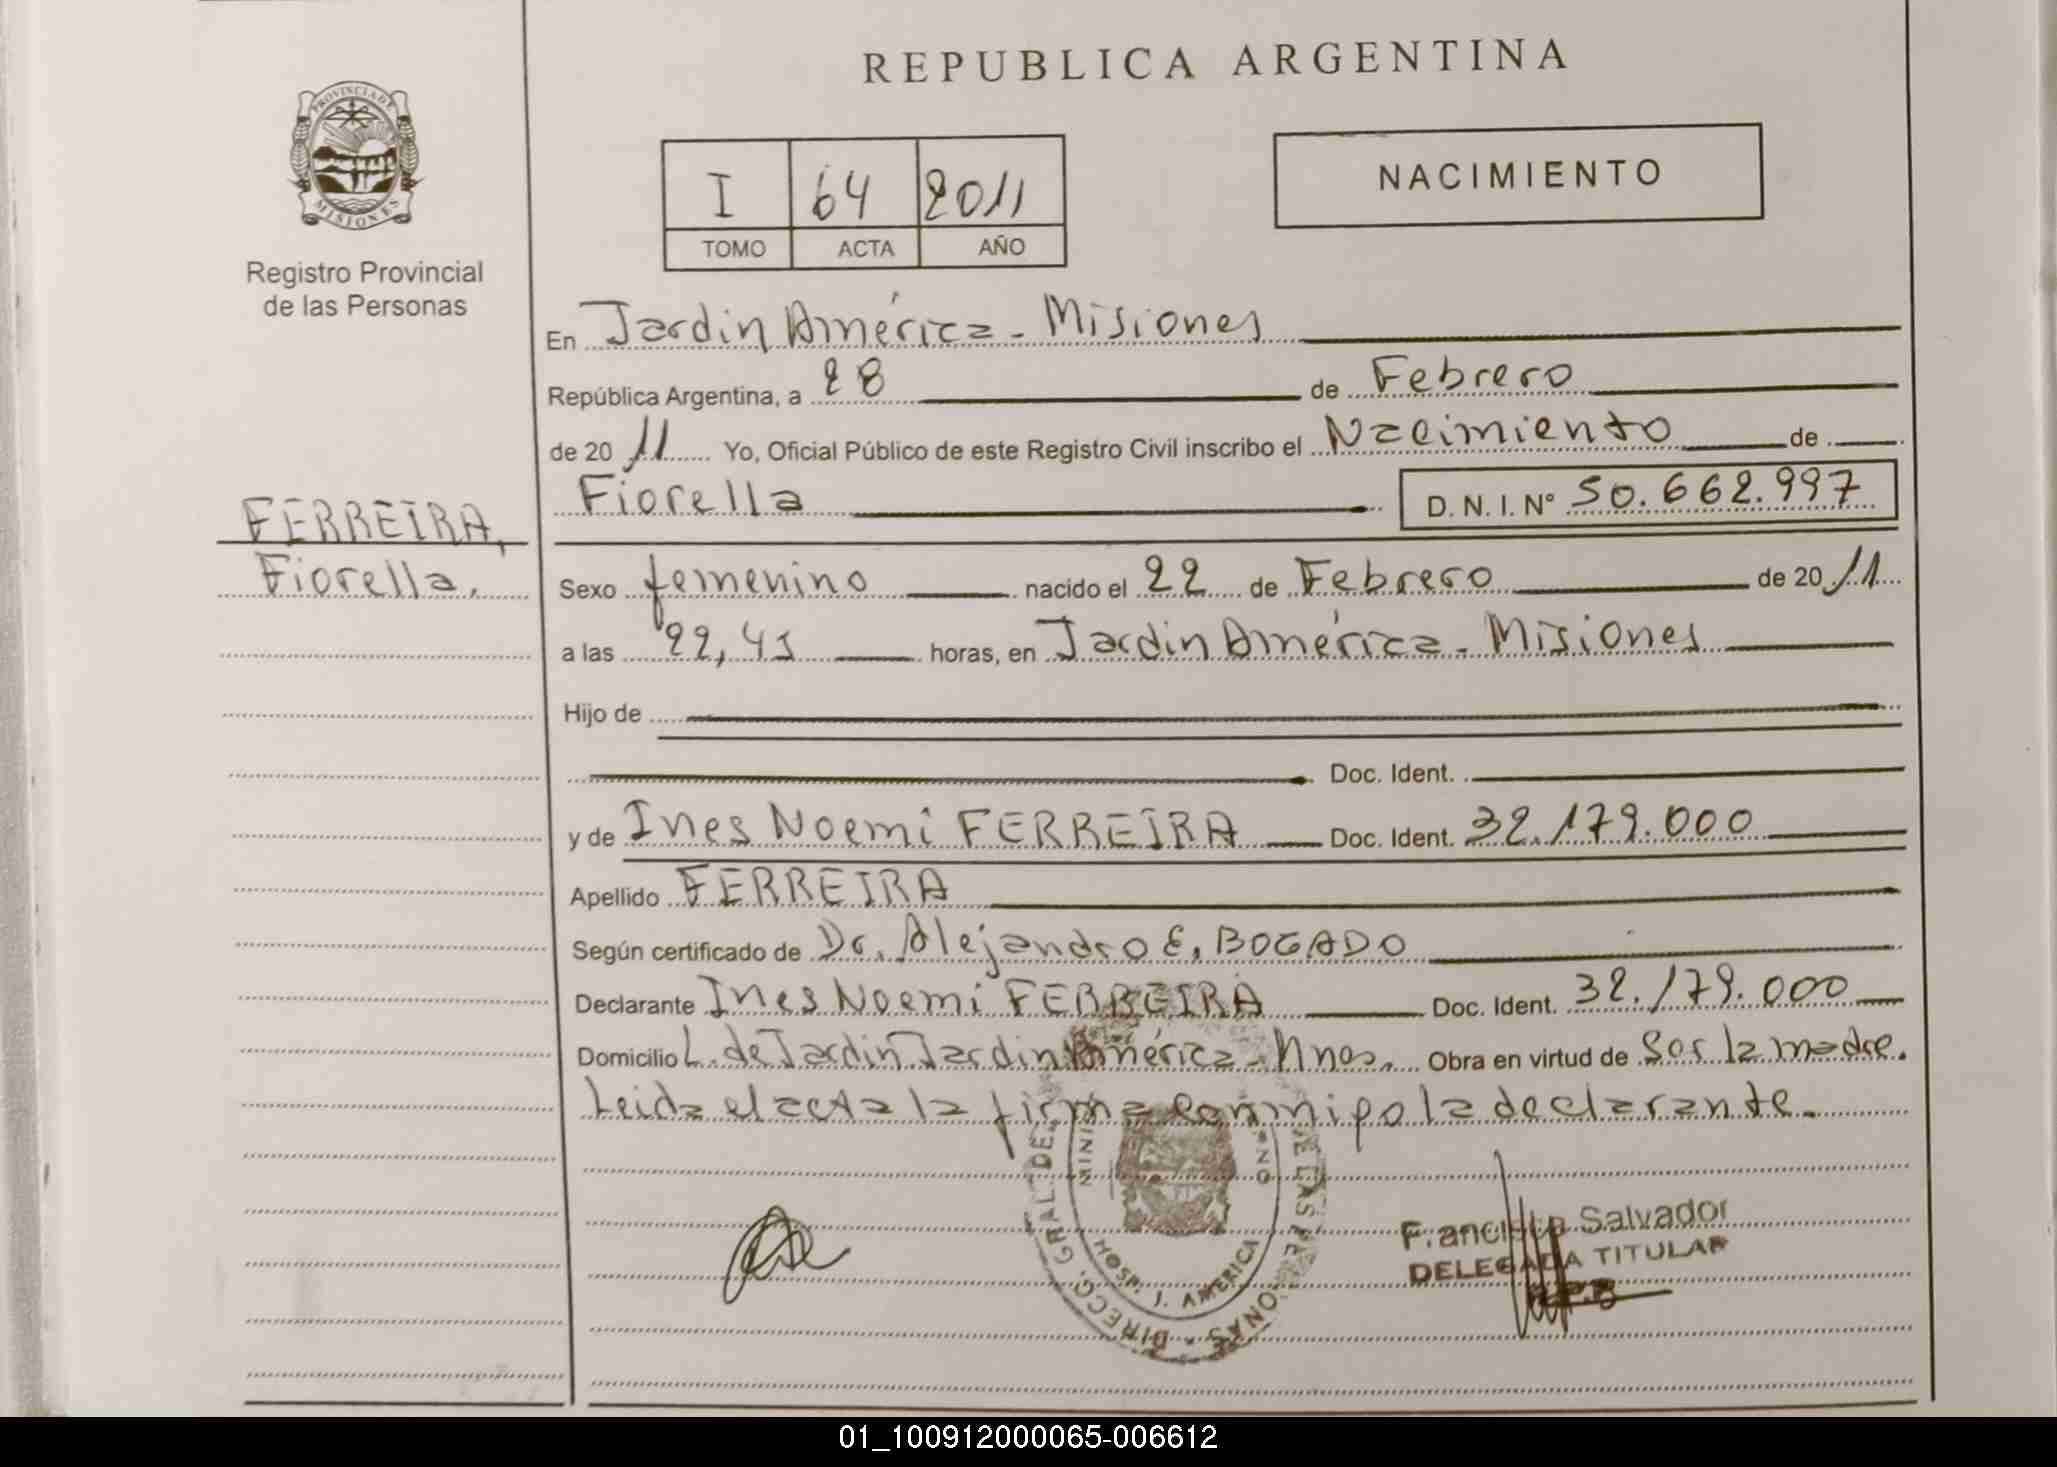 REPUBLICA ARGENTINA
PROVINCIA DE
MISIONES
Registro Provincial
de las Personas
I 64 2011
TOMO ACTA AÑO
NACIMIENTO
En Jardin América - Misiones
República Argentina, a 28 de Febrero
de 20 11 Yo, Oficial Público de este Registro Civil inscribo el Nacimiento de
Fiorella D. N. I. N° 50.662.997
FERREIRA,
Fiorella.
Sexo femenino nacido el 22 de Febrero de 20 11
a las 22,45 horas, en Jardin América - Misiones
Hijo de
Doc. Ident.
y de Ines Noemi FERREIRA Doc. Ident. 32.179.000
Apellido FERREIRA
Según certificado de Dr. Alejandro E. BOGADO
Declarante Ines Noemi FERREIRA Doc. Ident. 32.179.000
Domicilio L. de Jardin Jardin América - Mnes. Obra en virtud de Ser la madre.
Leida el acta la firma conmigo la declarante.
DIRECC. GRAL DE LAS PERSONAS
HOSP. J. AMERICA
Francisca Salvador
DELEGADA TITULAR
01_100912000065-006612